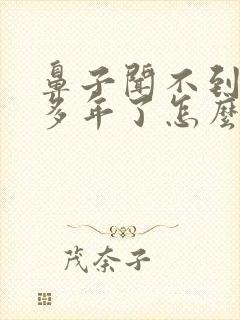 鼻子聞不到
多年了怎麼
茂奈子